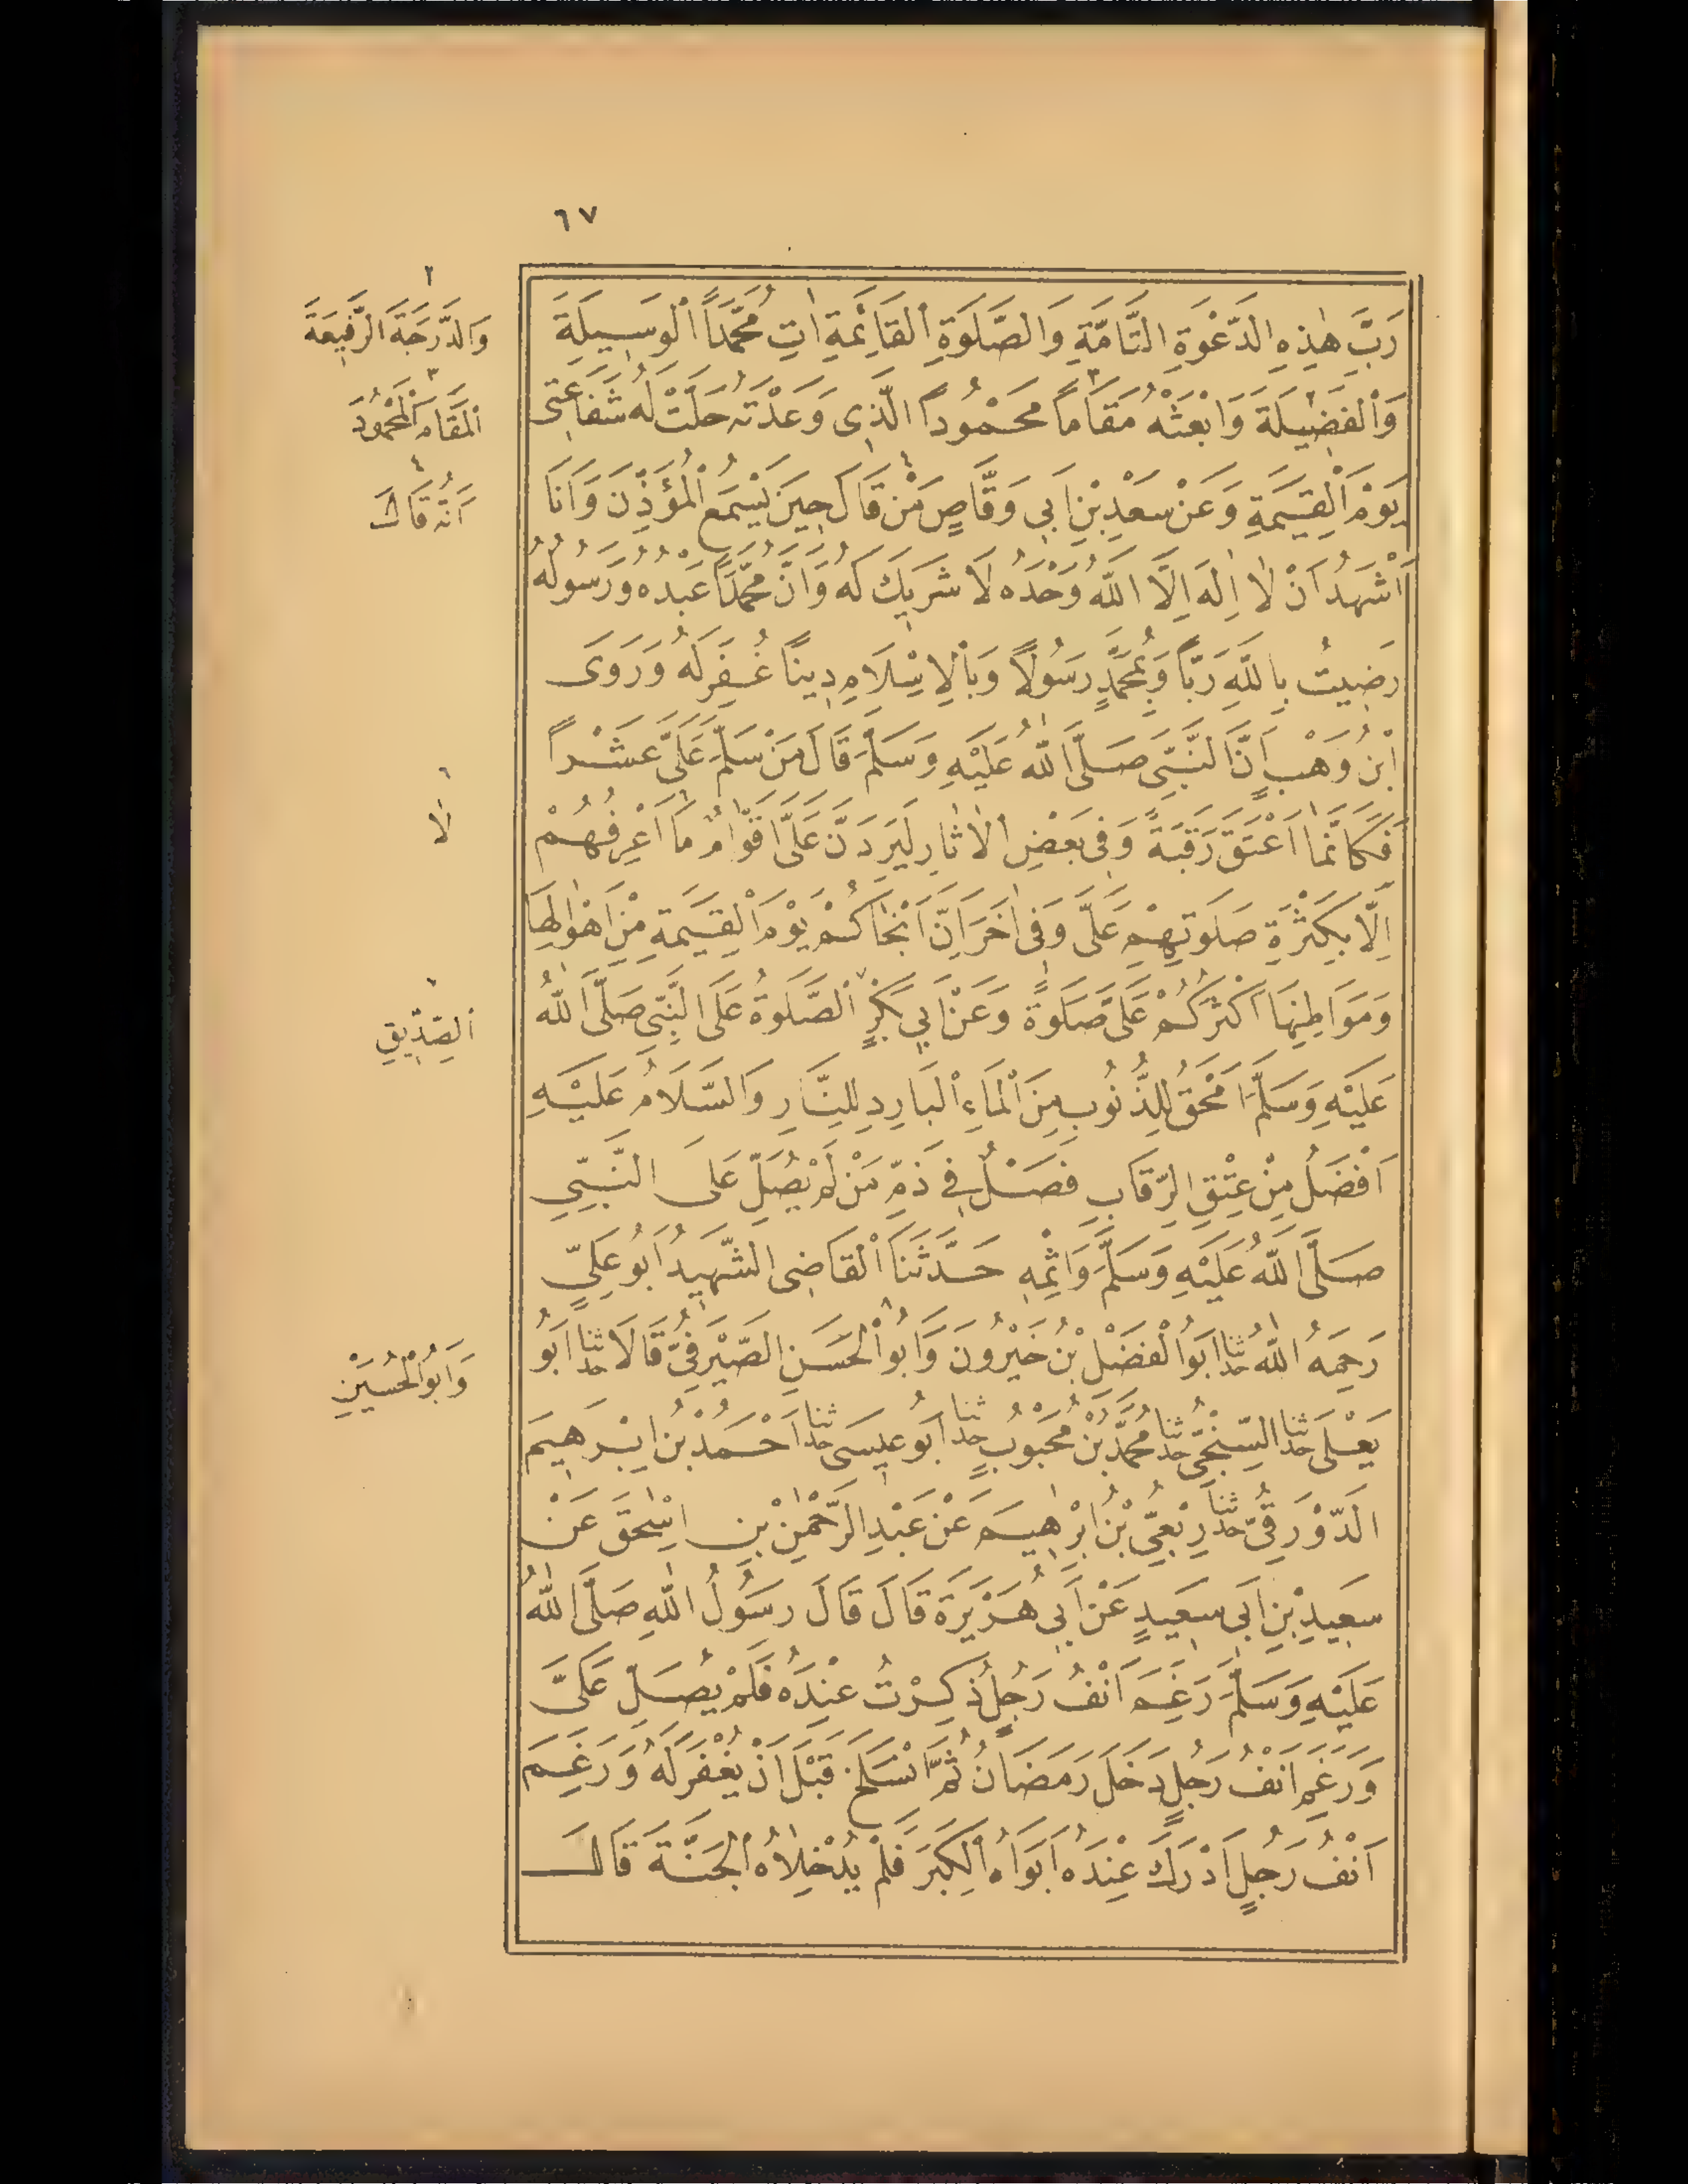 ٦٧
رَبَّ هٰذِهِ الدَّعْوَةِ التَّامَّةِ وَالصَّلَوةِ الْقَائِمَةِ اٰتِ مُحَمَّدًا الْوَسِيلَةَ
وَالْفَضِيلَةَ وَابْعَثْهُ مَقَامًا مَحْمُودًا الَّذِى وَعَدْتَهُ حَلَّتْ لَهُ شَفَاعَتِى
يَوْمَ الْقِيٰمَةِ وَعَنْ سَعْدِ بْنِ اَبِى وَقَّاصٍ مَنْ قَالَ حِينَ يَسْمَعُ الْمُؤَذِّنَ وَاَنَا
اَشْهَدُ اَنْ لٰا اِلٰهَ اِلَّا اللّٰهُ وَحْدَهُ لَا شَرِيكَ لَهُ وَاَنَّ مُحَمَّدًا عَبْدُهُ وَرَسُولُهُ
رَضِيتُ بِاللّٰهِ رَبًّا وَبِمُحَمَّدٍ رَسُولًا وَبِالْاِسْلَامِ دِينًا غُفِرَ لَهُ وَرَوَى
ابْنُ وَهْبٍ اَنَّ النَّبِىَّ صَلَّى اللّٰهُ عَلَيْهِ وَسَلَّمَ قَالَ مَنْ سَلَّمَ عَلَىَّ عَشْرًا
فَكَاَنَّمَا اَعْتَقَ رَقَبَةً وَفِى بَعْضِ الْاٰثَارِ لَيَرِدَنَّ عَلَىَّ اَقْوَامٌ مَا اَعْرِفُهُمْ
اِلَّا بِكَثْرَةِ صَلَوتِهِمْ عَلَىَّ وَفِى اٰخَرَ اِنَّ اَنْجَاكُمْ يَوْمَ الْقِيٰمَةِ مِنْ اَهْوَالِهَا
وَمَوَاطِنِهَا اَكْثَرُكُمْ عَلَىَّ صَلَوةً وَعَنْ اَبِى بَكْرٍ ٧ الصَّلَوةُ عَلَى النَّبِىِّ صَلَّى اللّٰهُ
عَلَيْهِ وَسَلَّمَ اَمْحَقُ لِلذُّنُوبِ مِنَ الْمَاءِ الْبَارِدِ لِلنَّارِ وَالسَّلَامُ عَلَيْهِ
اَفْضَلُ مِنْ عِتْقِ الرِّقَابِ فَصْلٌ فِى ذَمِّ مَنْ لَمْ يُصَلِّ عَلَى النَّبِىِّ
صَلَّى اللّٰهُ عَلَيْهِ وَسَلَّمَ وَاِثْمِهِ حَدَّثَنَا الْقَاضِى الشَّهِيدُ اَبُو عَلِىٍّ
رَحِمَهُ اللّٰهُ حدثنا اَبُو الْفَضْلِ بْنُ خَيْرُونَ وَاَبُو الْحَسَنِ ٨ الصَّيْرَفِىُّ قَالَا حدثنا اَبُو
يَعْلَى حدثنا السِّنْجِىُّ حدثنا مُحَمَّدُ بْنُ مَحْبُوبٍ حدثنا اَبُو عِيسَى حدثنا اَحْمَدُ بْنُ اِبْرٰهِيمَ
الدَّوْرَقِىُّ حدثنا رِبْعِىُّ بْنُ اِبْرٰهِيمَ عَنْ عَبْدِ الرَّحْمٰنِ بْنِ اِسْحٰقَ عَنْ
سَعِيدِ بْنِ اَبِى سَعِيدٍ عَنْ اَبِى هُرَيْرَةَ قَالَ قَالَ رَسُولُ اللّٰهِ صَلَّى اللّٰهُ
عَلَيْهِ وَسَلَّمَ رَغِمَ اَنْفُ رَجُلٍ ذُكِرْتُ عِنْدَهُ فَلَمْ يُصَلِّ عَلَىَّ
وَرَغِمَ اَنْفُ رَجُلٍ دَخَلَ رَمَضَانُ ثُمَّ انْسَلَخَ قَبْلَ اَنْ يُغْفَرَ لَهُ وَرَغِمَ
اَنْفُ رَجُلٍ اَدْرَكَ عِنْدَهُ اَبَوَاهُ الْكِبَرَ فَلَمْ يُدْخِلَاهُ الْجَنَّةَ قَالَ
٢
وَالدَّرَجَةَ الرَّفِيعَةَ
٣
الْمَقَامَ الْمَحْمُودَ
٤
اَنَّهُ قَالَ
٦
لَا
الصِّدِّيقِ
وَاَبُو الْحُسَيْنِ